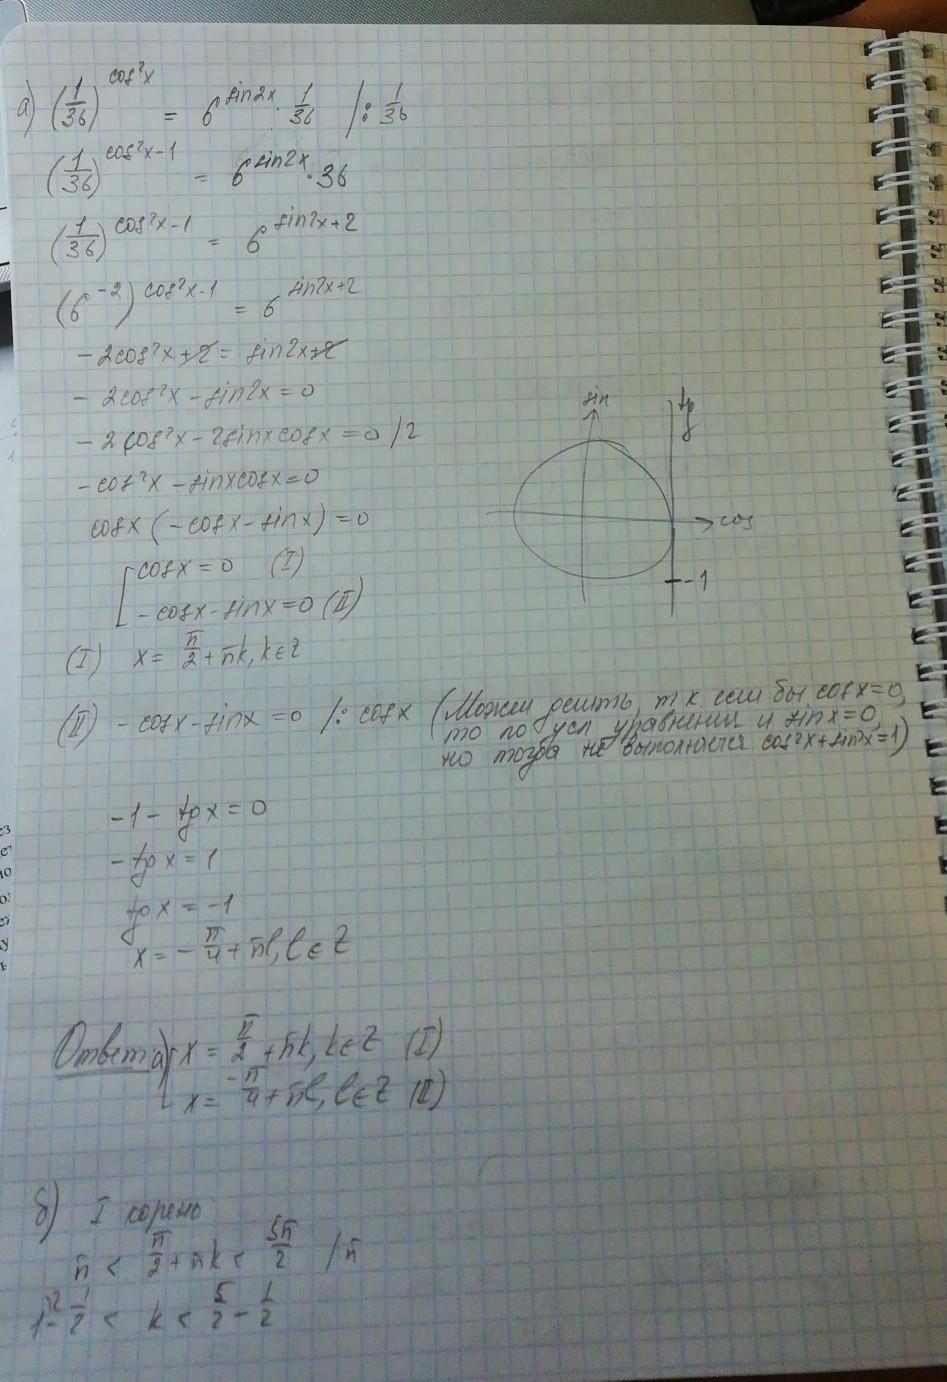 а) (1/36)^cos²x = 6^sin2x · 1/36 /: 1/36
(1/36)^cos²x-1 = 6^sin2x · 36
(1/36)^cos²x-1 = 6^sin2x+2
(6^-2)^cos²x-1 = 6^sin2x+2
-2cos²x+2 = sin2x+2
-2cos²x - sin2x = 0
-2cos²x - 2sinxcosx = 0 /2
-cos²x - sinxcosx = 0
cosx (-cosx - sinx) = 0
[cosx = 0 (I)
-cosx - sinx = 0 (II)
sin
tg
cos
-1
(I) x = π/2 + πk, k∈Z
(II) -cosx - sinx = 0 /: cosx (Можем делить, т к если бы cosx=0,
то по усл уравнении и sinx=0,
но тогда не выполняется cos²x+sin²x=1)
-1 - tgx = 0
-tgx = 1
tgx = -1
x = -π/4 + πl, l∈Z
Ответ а) [x = π/2 + πk, k∈Z (I)
x = -π/4 + πl, l∈Z (II)
б) I корень
π < π/2 + πk < 5π/2 /π
1 - 1/2 < k < 5/2 - 1/2